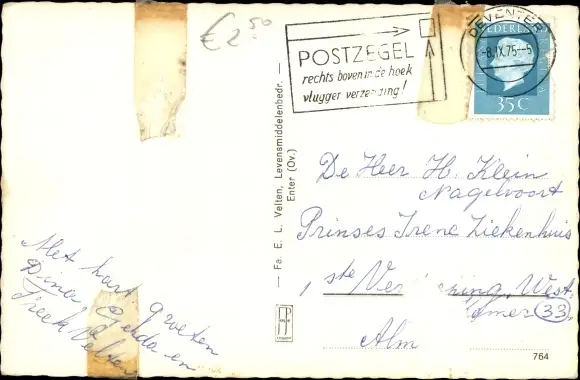 €2.50
POSTZEGEL
rechts boven in de hoek
vlugger verzending!
DEVENTER
-8.IX.75-5
NEDERLAND
35 C
Fa. E. L. Velten, Levensmiddelenbedr.
Enter (Ov.)
De Heer H. Klein
Nagelvoort
Prinses Irene Ziekenhuis
1 ste Ver ching, West.
33
Alm
Met hart groeten
Dina en
Velten
764